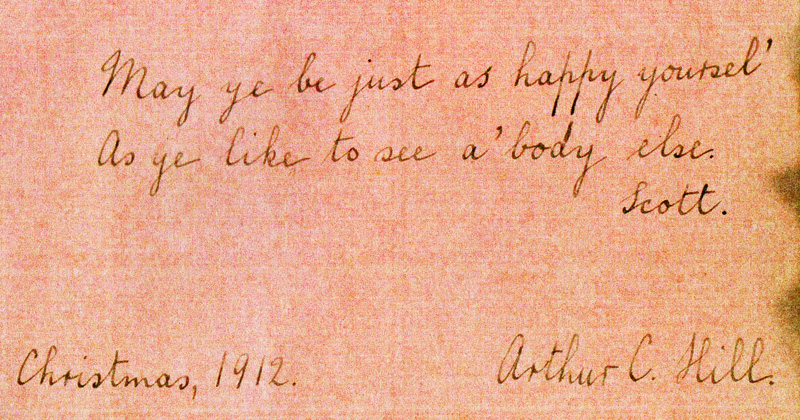 May ye be just as happy yoursel'
As ye like to see a' body else.
Scott.
Christmas, 1912. Arthur C. Hill.